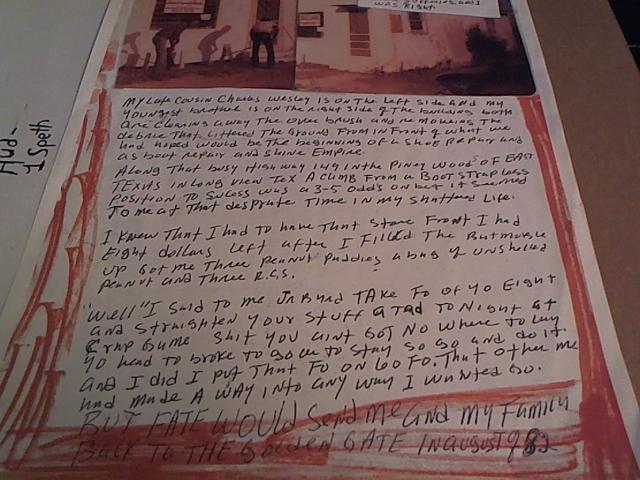 WAS RIGHT.
Hud-
Speth
MY LATE COUSIN Charles Wesley IS ON The LEFT Side and my
YOUNGEST brother IS ON The RIGHT Side OF The building both
Are Clearing AWAY The Over brush and removing The
debrie That LITTered The Ground From IN Front of what we
had hoped would be The beginning OF a Shoe Repair and
as boot repair and Shine Empire.
ALONG That busy HighwAy 149 IN The Piney Woods OF EAST
TEXAS IN LONG VIEW TEX A CLIMB From A BOOTSTRAP Less
POSITION TO SUCESS WAS a 3-5 Odds ON bet IT Seemed
To me at That desprate Time IN my Shattered Life.
I Knew That I had To have That Store Front I had
Eight dollars Left after I Filled The Butmobile
up Got me Three Peanut Puddies a bag of unshelled
Peanut and Three R.C.S.
"Well" I Said To me Jr Bynd TAKE Fo of Yo Eight
and Straighten Your STUFF a TAD To Night at
Crap Game Shit You aint Got No where To Lay
Yo head To broke To go or To STAY So Go and do IT.
And I did I put That Fo on 60 Fo. That Other me
had made A WAY INTO any way I wanted Go.
BUT FATE WOULD Send me and my Family
BACK TO THE Golden GATE IN august 1982